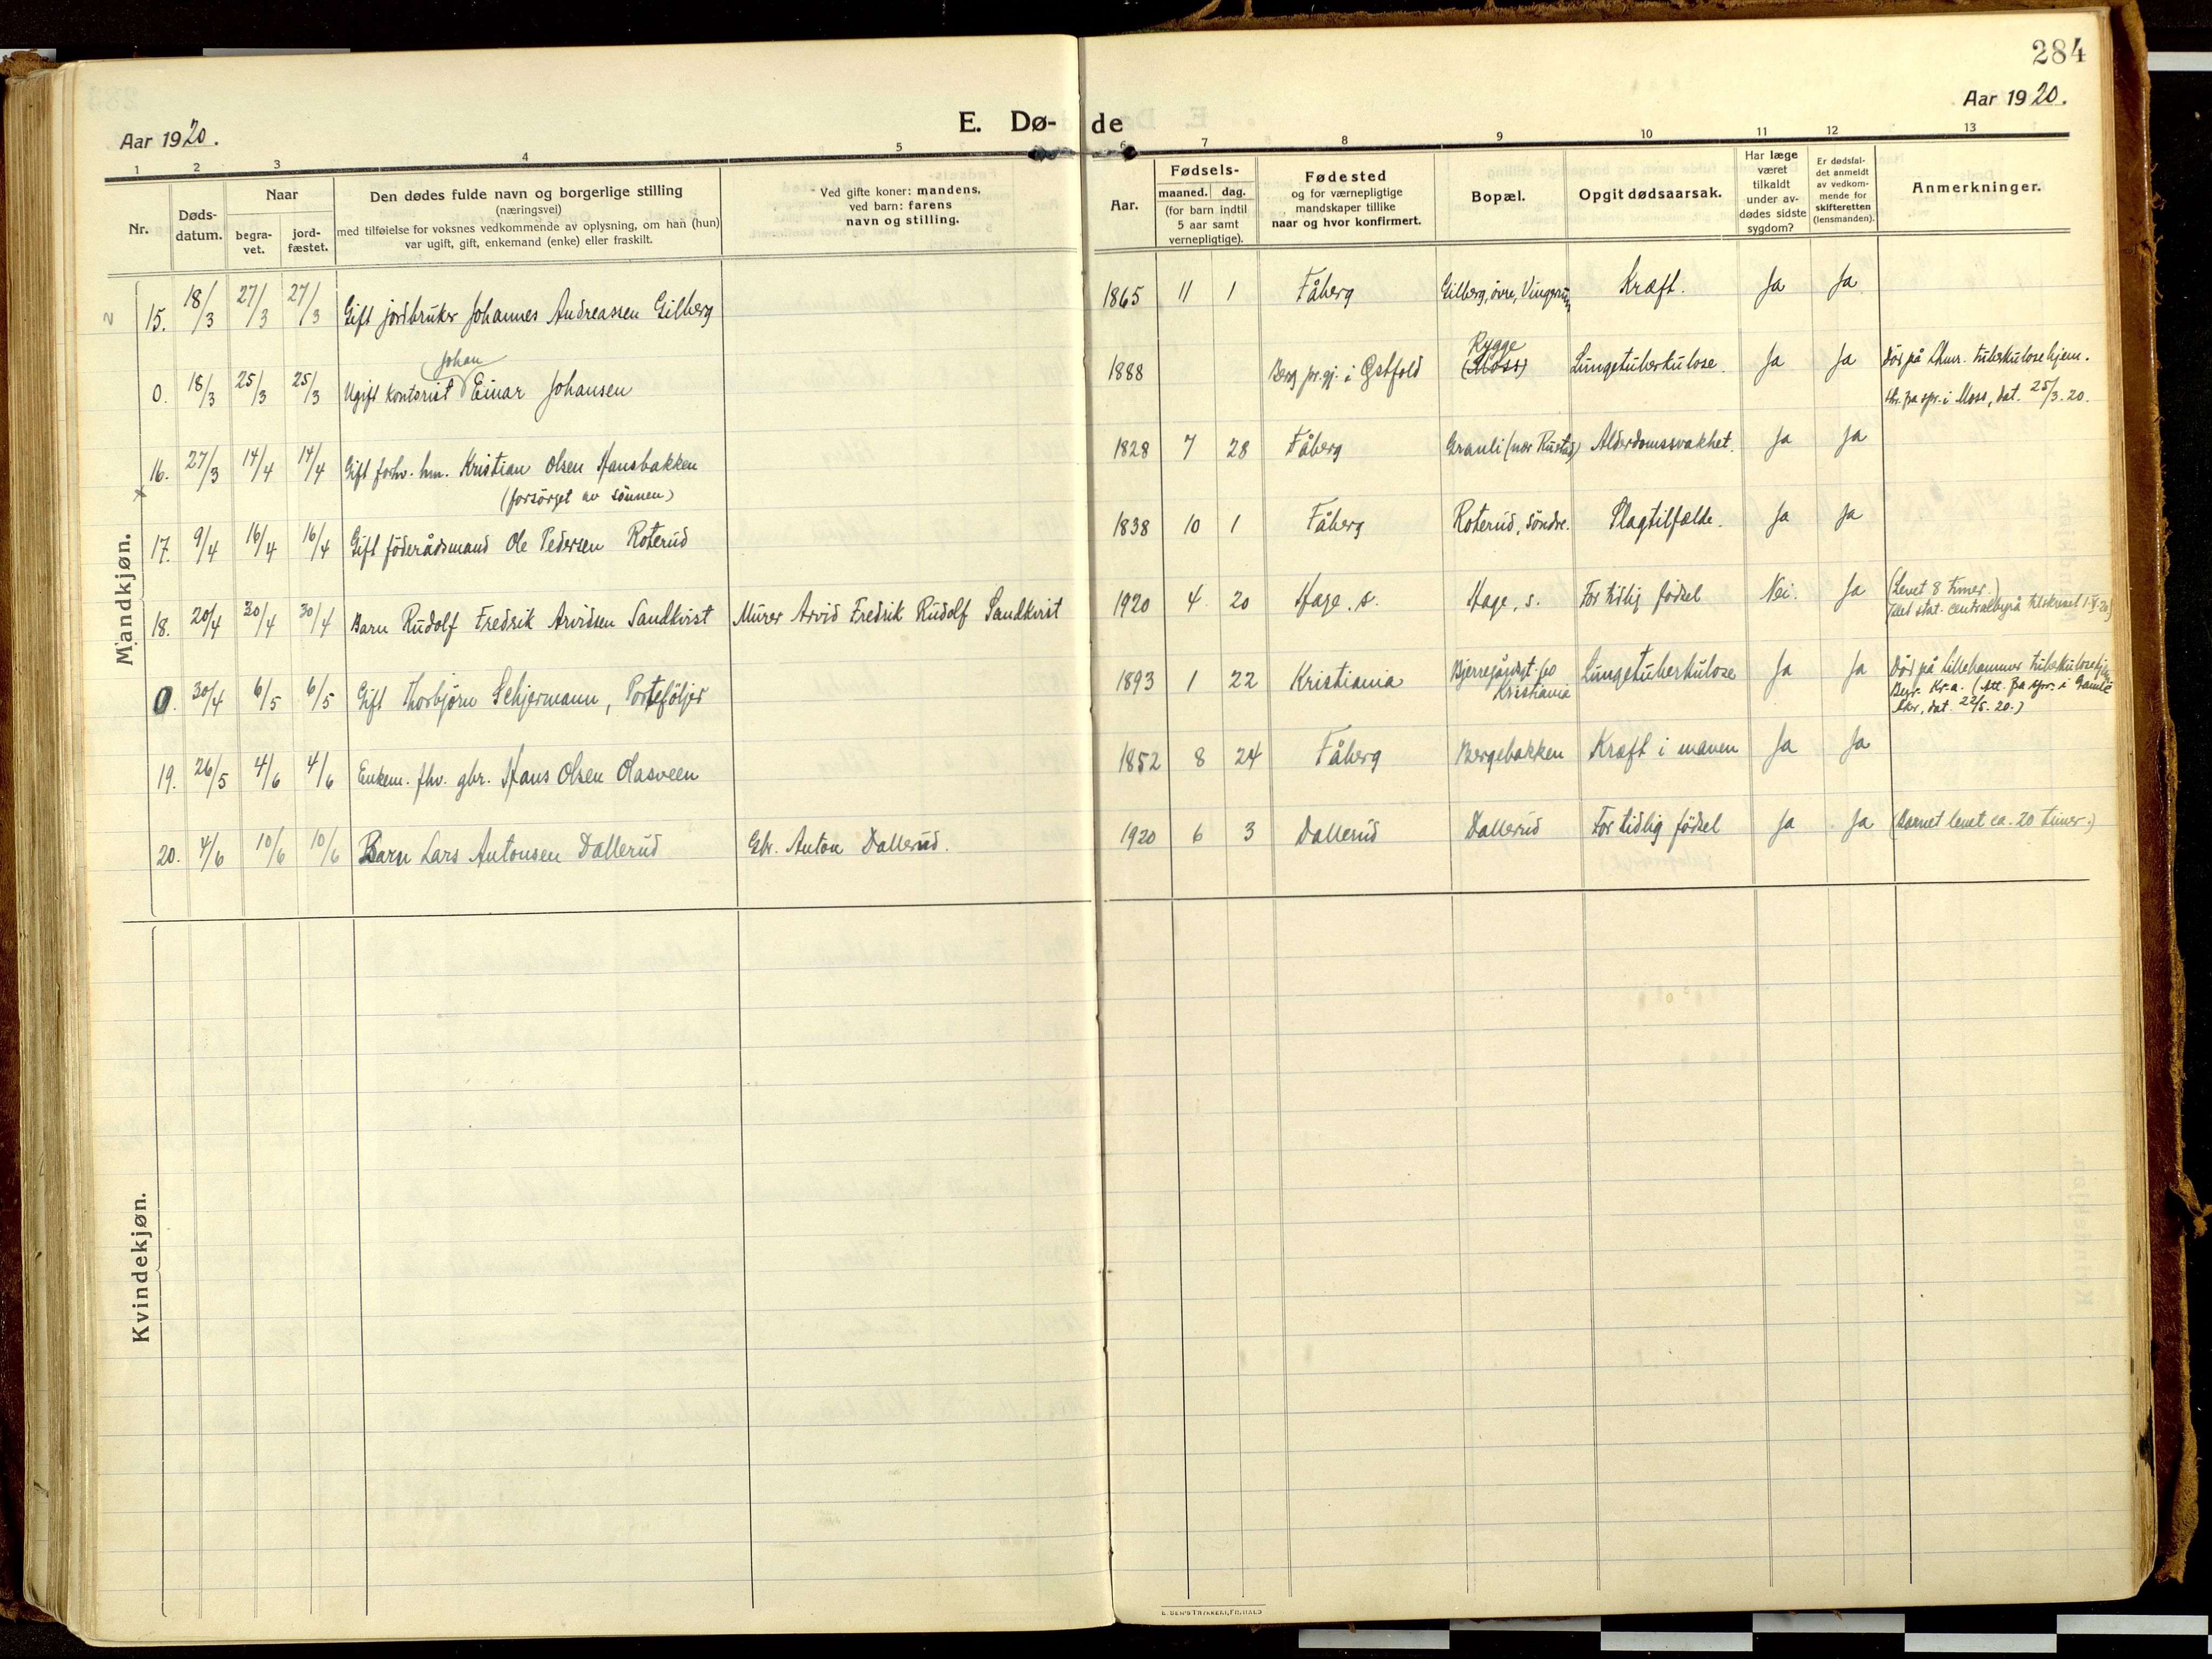 284
Aar 1920.
Aar 1920.
E. Dø-de
1 2 3 4 5 6 7 8 9 10 11 12 13
Nr.
Døds-datum.
Naar
begra-vet.
jord-fæstet.
Den dødes fulde navn og borgerlige stilling
(næringsvei)
med tilføielse for voksnes vedkommende av oplysning, om han (hun)
var ugift, gift, enkemand (enke) eller fraskilt.
Ved gifte koner: mandens,
ved barn: farens
navn og stilling.
Aar.
Fødsels-
maaned. dag.
(for barn indtil
5 aar samt
vernepligtige).
Fødested
og for værnepligtige
mandskaper tillike
naar og hvor konfirmert.
Bopæl.
Opgit dødsaarsak.
Har læge
været
tilkaldt
under av-
dødes sidste
sygdom?
Er dødsfal-
det anmeldt
av vedkom-
mende for
skifteretten
(lensmanden).
Anmerkninger.
Mandkjøn.
2 15. 18/3 27/3 27/3 Gift jordbruker Johannes Andreassen Gilberg 1865 11 1 Fåberg Gilberg, övre, Kræft. Ja Ja
Johan
Rygge
0. 18/3 25/3 25/3 Ugift kontorist Einar Johansen 1888 Berg pr.gj. i Østfold (Moss) Lungetuberkulose. Ja Ja Död på Lhmr. tuberkulosehjem.
fra spr. i Moss, dat. 25/3.20.
x 16. 27/3 14/4 14/4 Gift forhv. hm. Kristian Olsen Hansbakken 1828 7 28 Fåberg Granli (nær Rustad) Alderdomssvakhet. Ja Ja
(forsörget av sönnen)
17. 9/4 16/4 16/4 Gift föderådsmand Ole Pedersen Roterud 1838 10 1 Fåberg Roterud, söndre. Slagtilfælde. Ja Ja
18. 20/4 30/4 30/4 Barn Rudolf Fredrik Arvidsen Sandkvist Murer Arvid Fredrik Rudolf Sandkvist 1920 4 20 Hage, s. Hage, s. For tidlig födsel Nei. Ja (Levet 8 timer.)
(Det stat. centralbyrå tilskrevet 1.V.20)
0. 30/4 6/5 6/5 Gift Thorbjørn Schjermann, Porteföljer 1893 1 22 Kristiania Kristiania Lungetuberkulose Ja Ja Död på Lillehammer tuberkulosehjem
Begr. Kr.a. (Att. fra spr. i Gamle
Aker, dat. 22/5.20.)
19. 26/5 4/6 4/6 Enkem. fhv. gbr. Hans Olsen Olasveen 1852 8 24 Fåberg Bergebakken Kræft i maven Ja Ja
20. 4/6 10/6 10/6 Barn Lars Antonsen Dallerud Gbr. Anton Dallerud. 1920 6 3 Dallerud Dallerud For tidlig födsel Ja Ja (Barnet levet ca. 20 timer.)
Kvindekjøn.